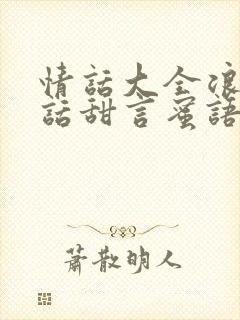 情話大全浪
話甜言蜜語
蕭散明人